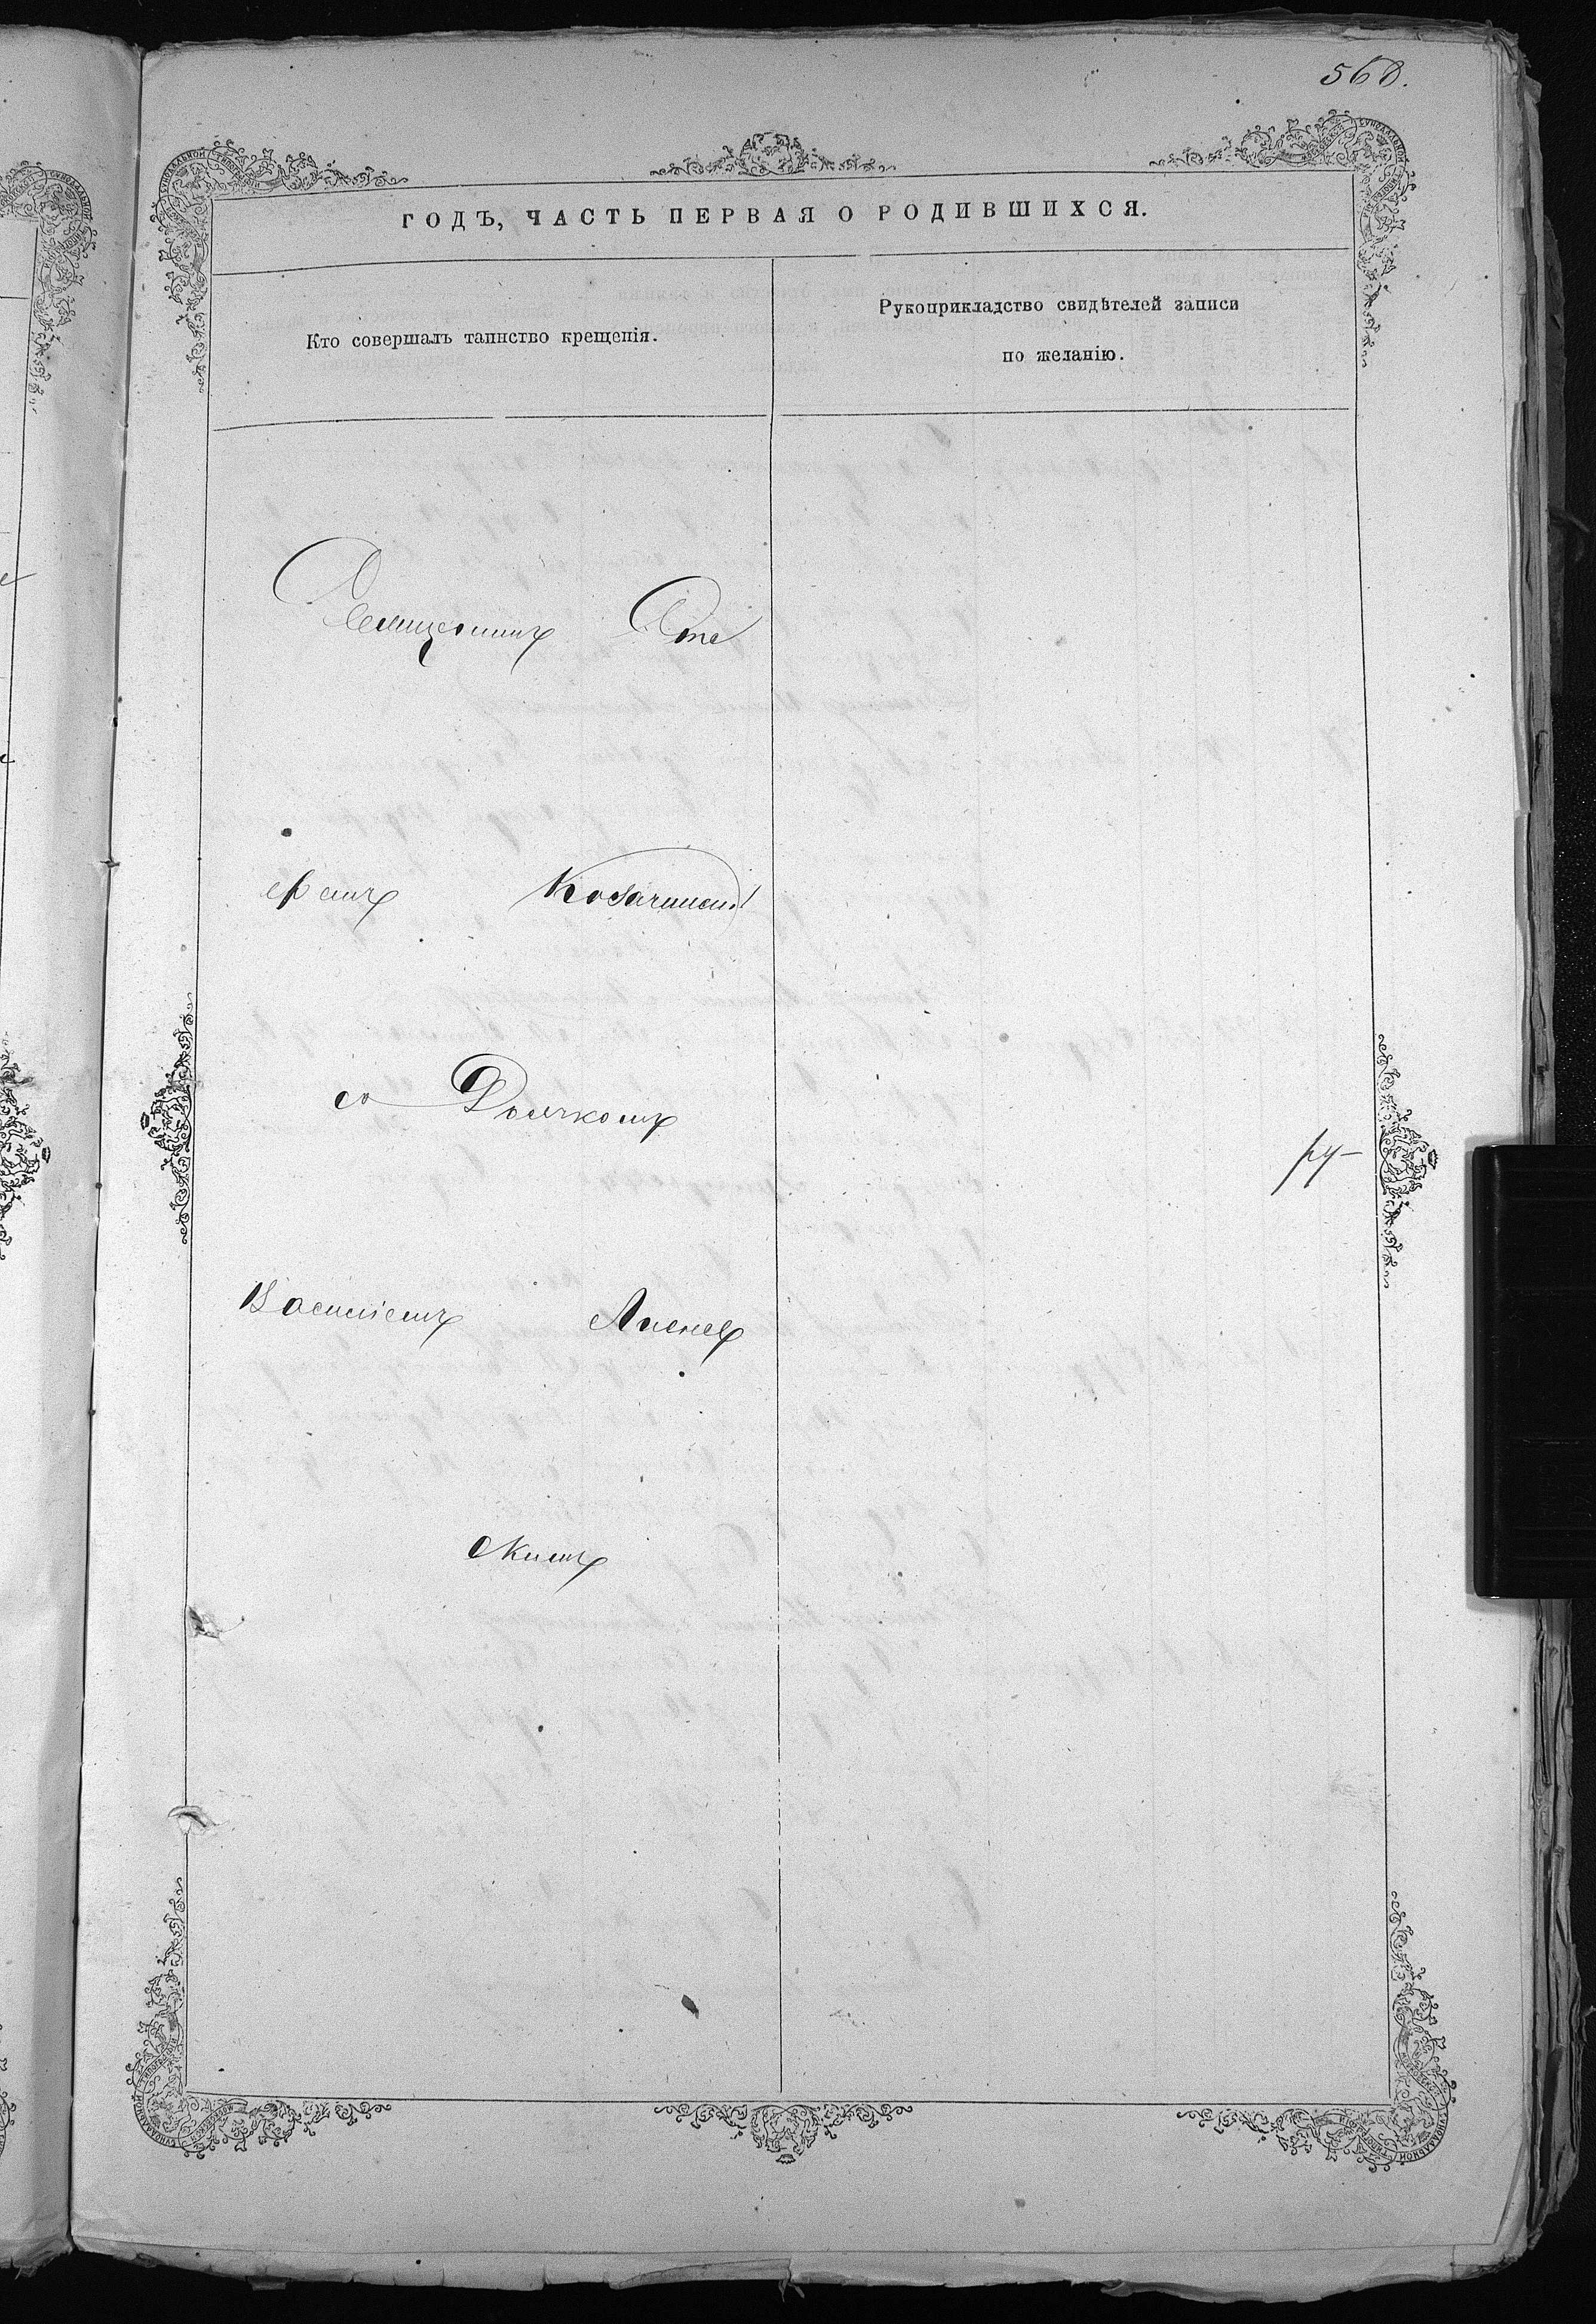 568.
ГОДЪ, ЧАСТЬ ПЕРВАЯ О РОДИВШИХСЯ.
Кто совершалъ таинство крещенія.
Рукоприкладство свидѣтелей записи
по желанію.
Священникъ Сте
фанъ Козачинскій
со Дьячкомъ
ру-
Василіемъ Лиснев
скимъ